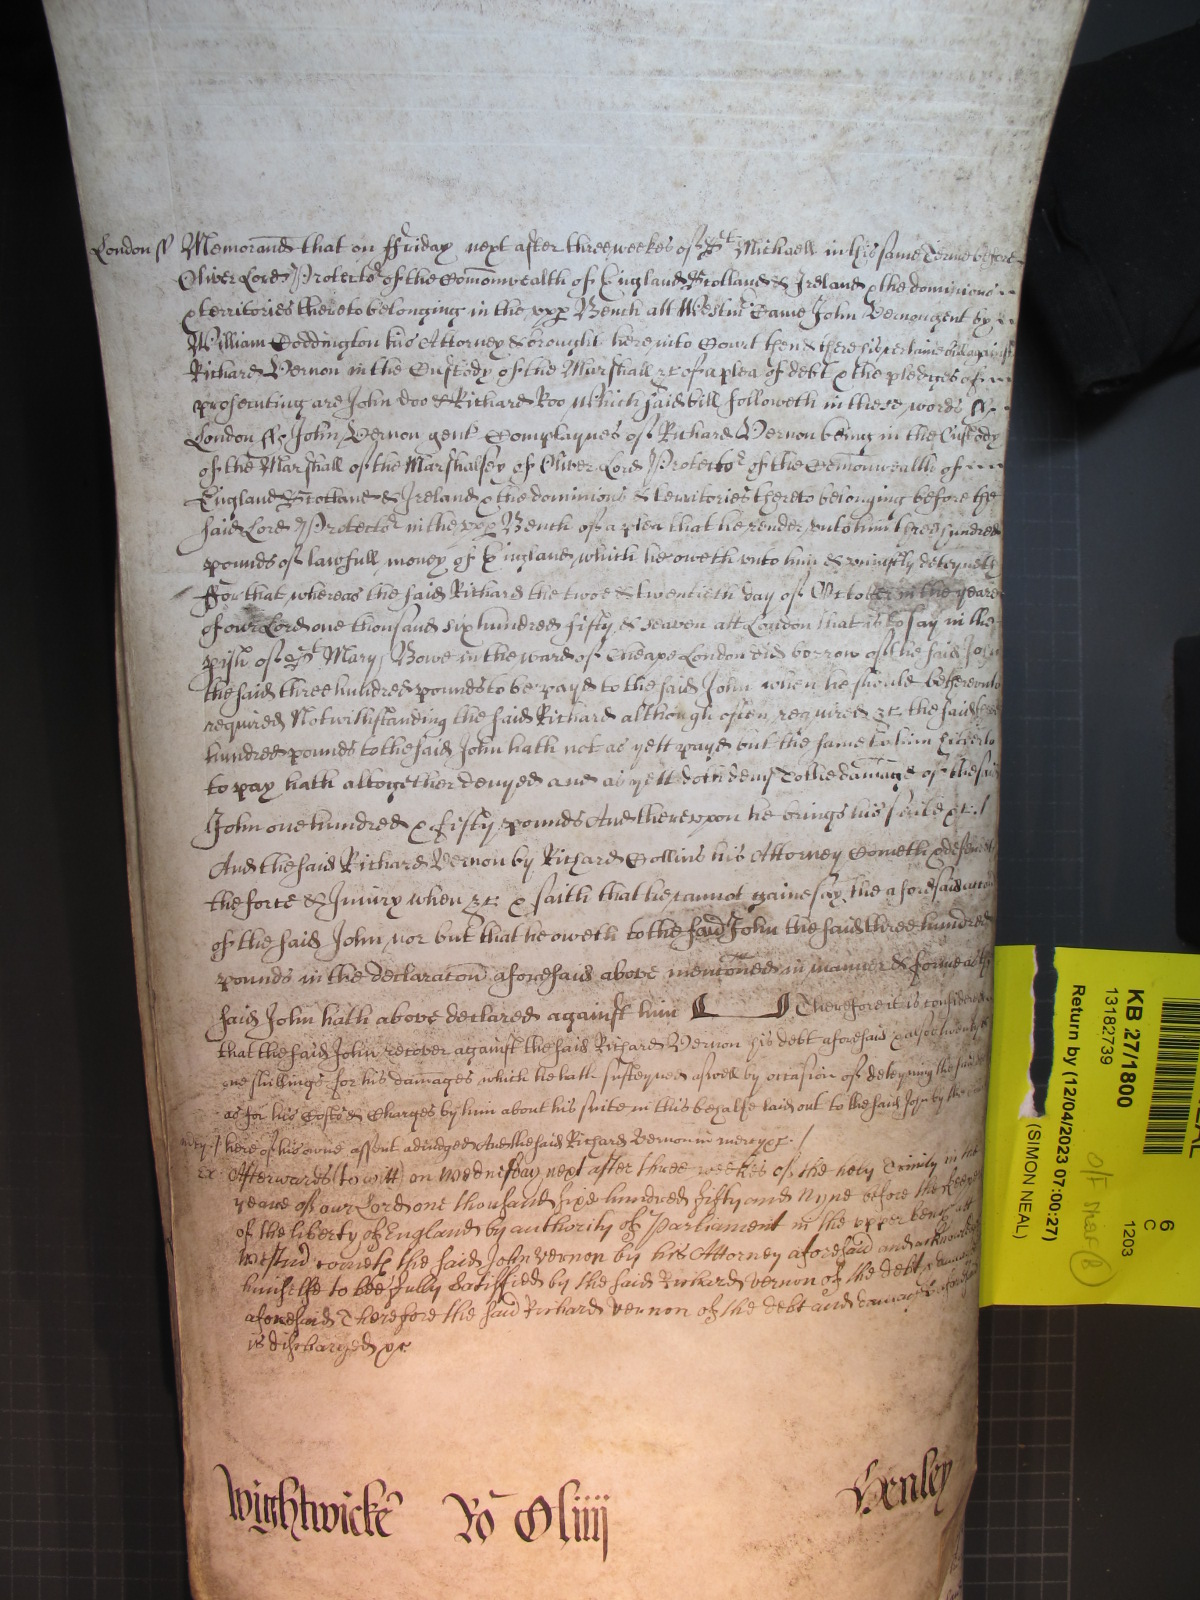 London ss Memorand that on ffriday next after three weekes of St Michaell in this same Terme before
Oliver Lord Protector of the Comonwealth of England Scotland & Ireland & the dominions
& territories thereto belonging in the upp Bench att Westmr Came John Vernon gent by
William Coddington his Attorney & brought here into Court then & there his certaine bill against
Richard Vernon in the Custody of the Marshall &c of a plea of debt & the pledges of
prosecuting are John Doo & Richard Roo Which said bill followeth in these words ss
London ss John Vernon gent Complaynes of Richard Vernon being in the Custody
of the Marshall of the Marshalsey of Oliver Lord Protector of the Comonwealth of
England Scotland & Ireland & the dominions & territories thereto belonging before the
said Lord Protector in the upp Bench of a plea that he render unto him three hundred
pounds of lawfull money of England which he oweth unto him & uniustly deteyneth
ffor that whereas the said Richard the twoe & twentieth day of October in the yeare
of our Lord one thousand six hundred fifty & seaven att London that is to say in the
pish of St Mary Bowe in the ward of Cheape London did borrow of the said John
the said three hundred pounds to be payd to the said John when he should be thereunto
required Notwithstanding the said Richard although often required &c the said three
hundred pounds to the said John hath not as yett payd but the same to him hitherto
to pay hath altogether denyed and as yett doth deny To the damage of the said
John one hundred & fifty pounds And thereupon he brings his suite &c /
And the said Richard Vernon by Richard Collins his Attorney Cometh & defendeth
the force & Iniury when &c & saith that he cannot gainesay the aforesaid accon
of the said John nor but that he oweth to the said John the said three hundred
pounds in the declaracon aforesaid above menconed in manner & forme as the
said John hath above declared against him Therefore it is considered
that the said John recover against the said Richard Vernon his debt aforesaid & alsoe twenty &
one shillings for his damages which he hath susteyned aswell by occasion of deteyning the said debt
as for his Costs & Charges by him about his suite in this behalfe laid out to the said John by the court
mcy / here of his owne assent adiudged And the said Richard Vernon in mercy &c /
Afterwards (to witt) on Wednesday next after three weekes of the holy Trinity in the
yeare of our Lord one thousand sixe hundred fifty and nyne before the keepers
of the liberty of England by authority of Parliament in the upper bench att
Westmr cometh the said John Vernon by his Attorney aforesaid and acknowledgeth
himselfe to bee fully Satisffied by the said Richard Vernon of the debt & damages
aforesaid Therefore the said Richard Vernon of the debt and damages aforesaid
is discharged &c
Wightwicke Ro Cliiij Henley
KB 27/1800
13182739
Return by (12/04/2023 07:00:27)
(SIMON NEAL)
6
C
1203